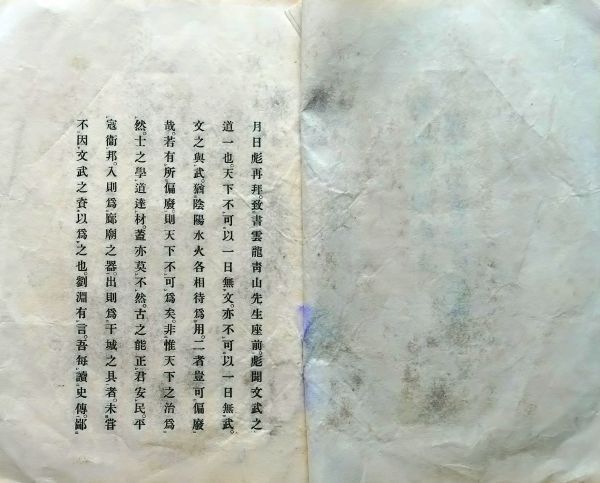 月日彪再拜。致書雲龍青山先生座前。彪聞文武之
道一也。天下不可以一日無文。亦不可以一日無武。
文之與武。猶陰陽水火各相待爲用。二者豈可偏廢
哉。若有所偏廢則天下不可爲矣。非惟天下之治爲
然。士之學道達材。蓋亦莫不然。古之能正君安民。平
寇衞邦。入則爲廊廟之器。出則爲干城之具者。未嘗
不因文武之資以爲之也。劉淵有言。吾每讀史傳。鄙